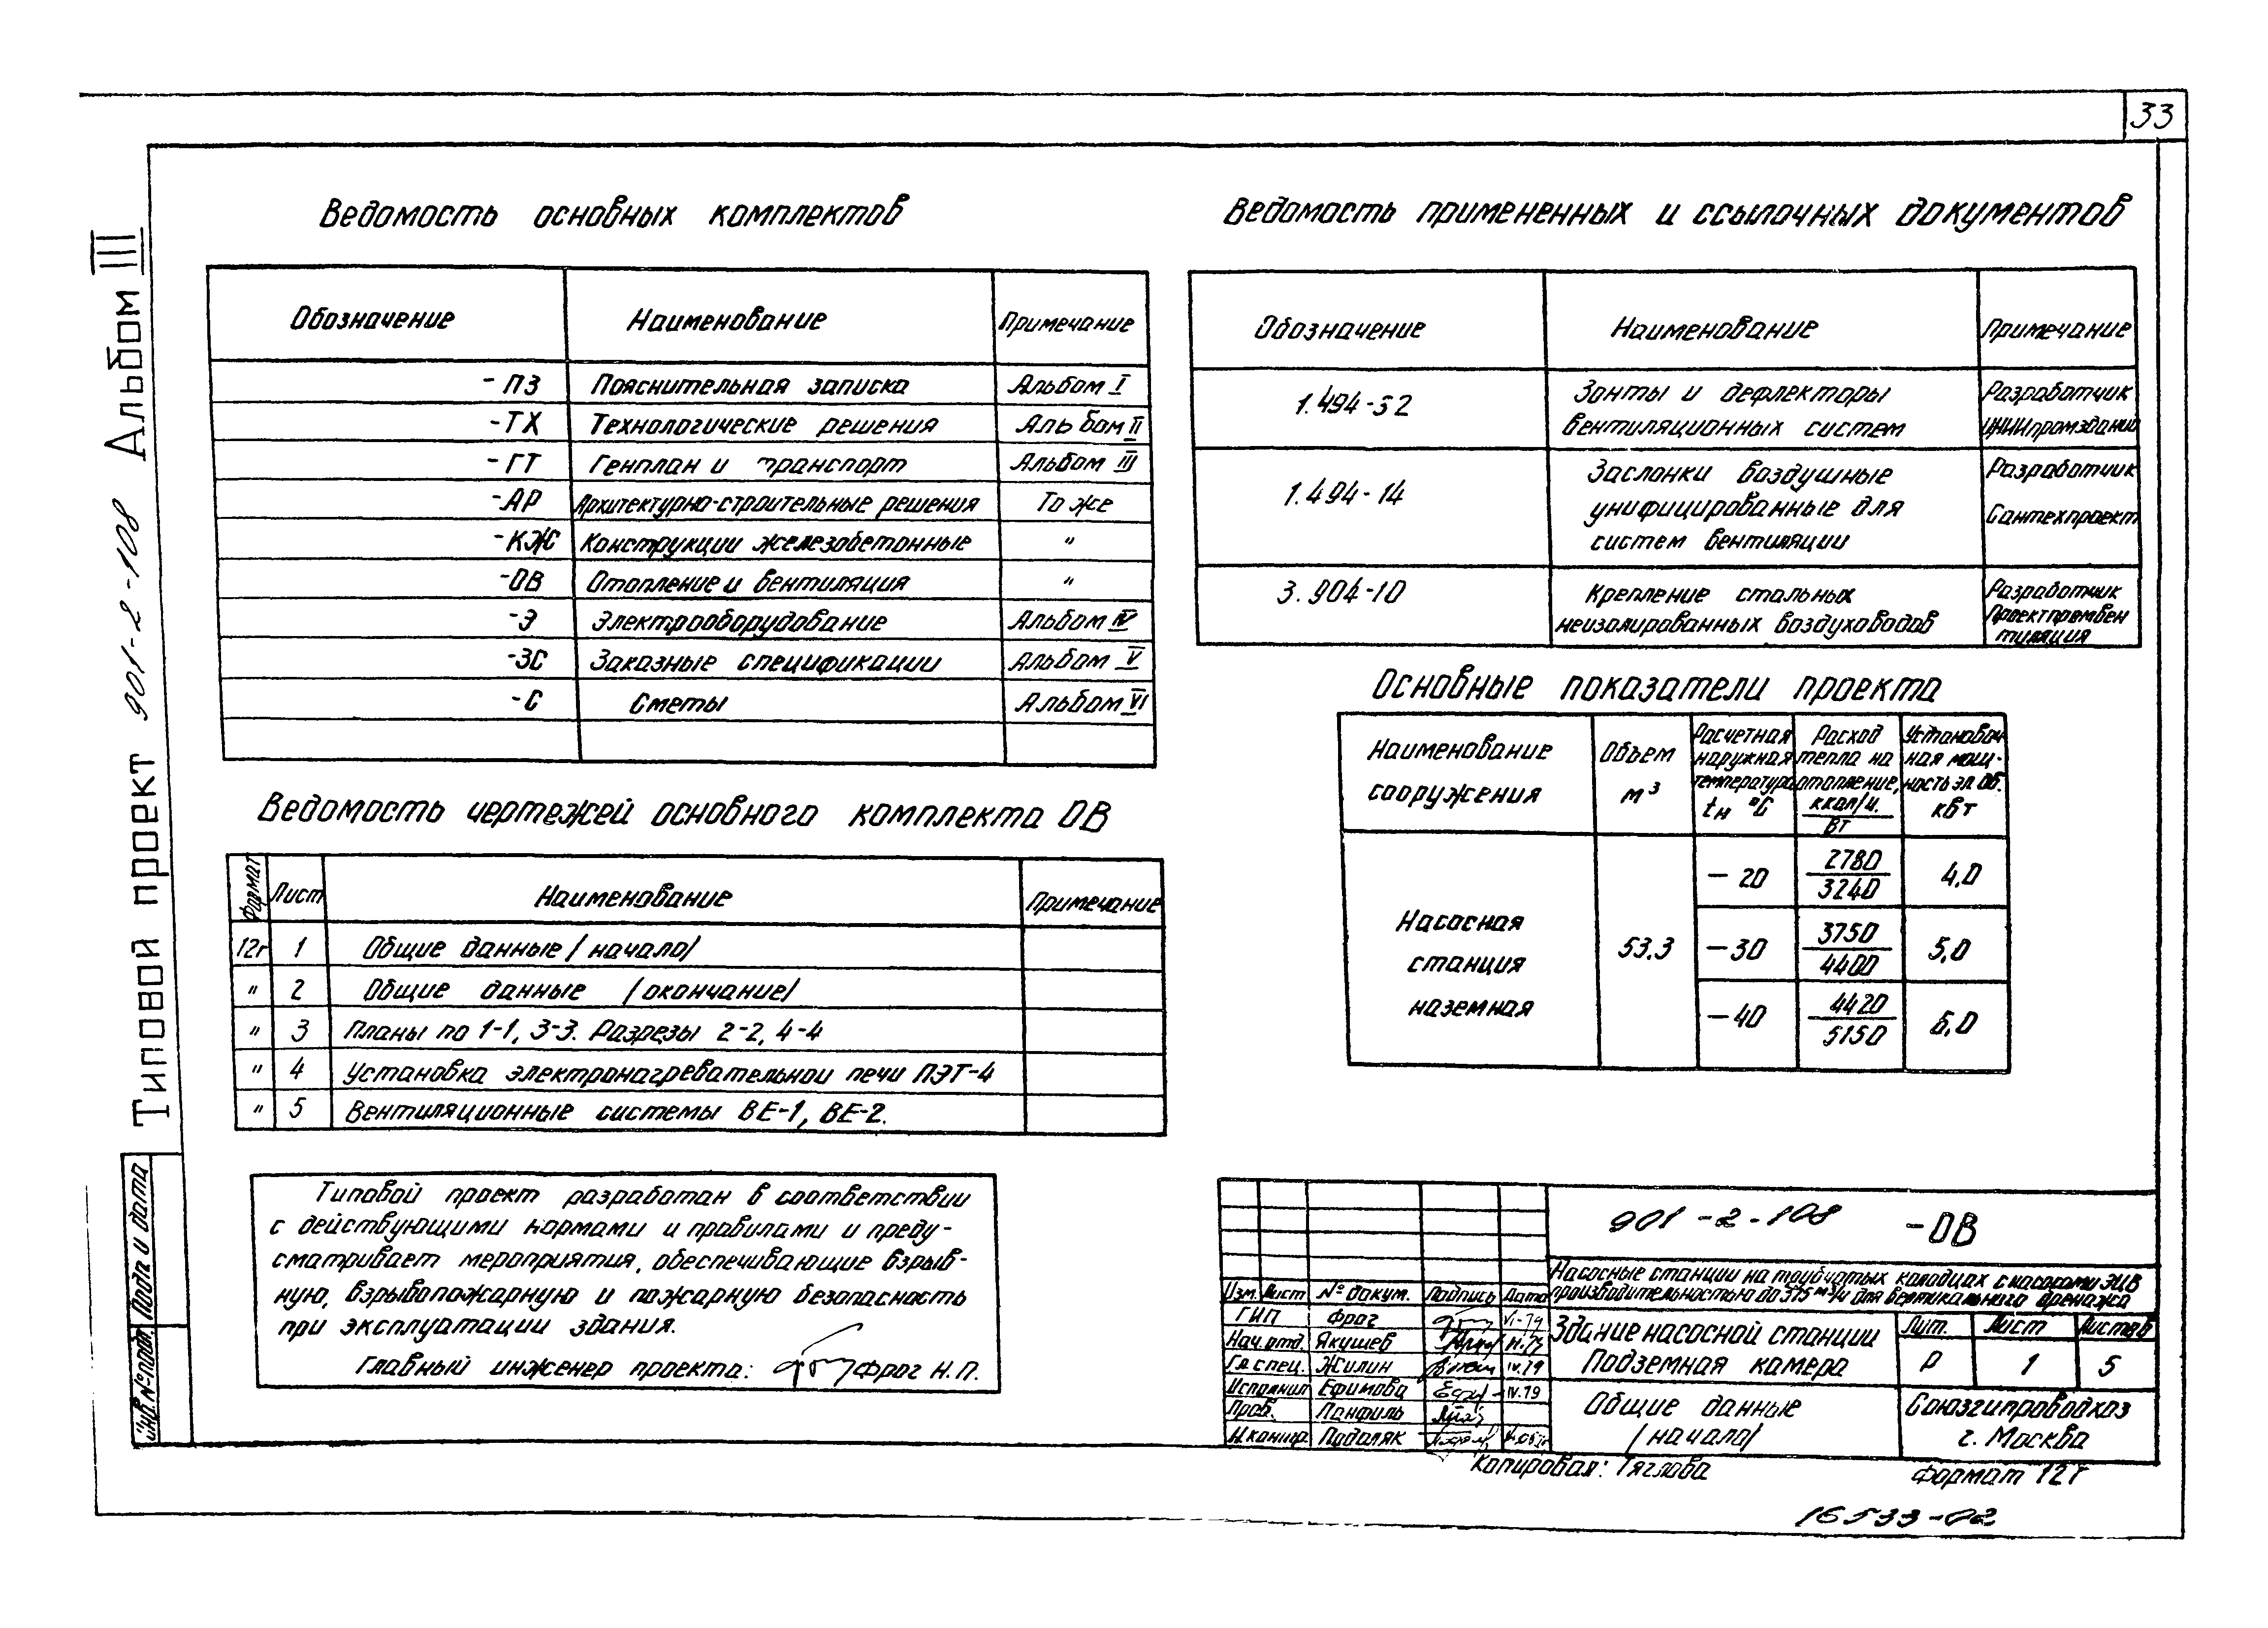 33
Типовой проект 901-2-108 Альбом III
Ведомость основных комплектов
Обозначение Наименование Примечание
-ПЗ Пояснительная записка Альбом I
-ТХ Технологические решения Альбом II
-ГТ Генплан и транспорт Альбом III
-АР Архитектурно-строительные решения То же
-КЖ Конструкции железобетонные "
-ОВ Отопление и вентиляция "
-Э Электрооборудование Альбом IV
-ЗС Заказные спецификации Альбом V
-С Сметы Альбом VI
Ведомость чертежей основного комплекта ОВ
Формат Лист Наименование Примечание
12г 1 Общие данные /начало/
" 2 Общие данные /окончание/
" 3 Планы по 1-1, 3-3. Разрезы 2-2, 4-4
" 4 Установка электронагревательной печи ПЭТ-4
" 5 Вентиляционные системы ВЕ-1, ВЕ-2.
Типовой проект разработан в соответствии
с действующими нормами и правилами и преду-
сматривает мероприятия, обеспечивающие взрыв-
ную, взрывопожарную и пожарную безопасность
при эксплуатации здания.
Главный инженер проекта: Фрог Н.П.
Ведомость примененных и ссылочных документов
Обозначение Наименование Примечание
1.494-32 Зонты и дефлекторы Разработчик
вентиляционных систем ЦНИИпромзданий
1.494-14 Заслонки воздушные Разработчик
унифицированные для Сантехпроект
систем вентиляции
3.904-10 Крепление стальных Разработчик
неизолированных воздуховодов Проектпромвен
тиляция
Основные показатели проекта
Наименование сооружения
Объем м³
Расчетная наружная температура tн °С
Расход тепла на отопление, ккал/ч. Вт
Установоч ная мощ- ность эл. об. кВт
Насосная станция наземная
53.3
-20 2780 3240 4,0
-30 3750 4400 5,0
-40 4420 5150 6,0
901-2-108 -ОВ
Насосные станции на трубчатых колодцах с насосами ЭЦВ
производительностью до 375 м³/ч для вертикального дренажа
Изм. Лист № докум. Подпись Дата
ГИП Фрог VI-79
Нач.отд. Якушев
Гл.спец. Жилин IV.79
Исполнил Ефимова IV.79
Пров. Панфиль
Н.контр. Подоляк
Здание насосной станции
Подземная камера
Лит. Лист Листов
Р 1 5
Общие данные
/начало/
Союзгипроводхоз
г. Москва
Копировал: Тяглова
Формат 12г
16533-02
Подп и дата
Инв.№ подл.